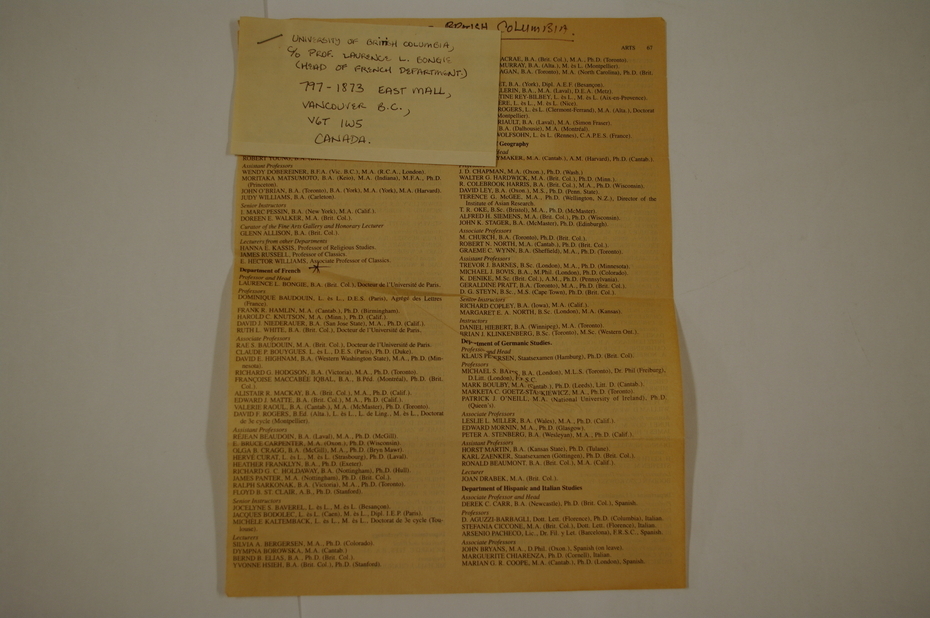 BRITISH COLUMBIA.
UNIVERSITY OF BRITISH COLUMBIA,
c/o PROF. LAURENCE L. BONGIE
(HEAD OF FRENCH DEPARTMENT)
797-1873 EAST MALL,
VANCOUVER B.C.,
V6T 1W5
CANADA.
ROBERT YOUNG, B.A.
Assistant Professors
WENDY DOBEREINER, B.F.A. (Vic. B.C.), M.A. (R.C.A., London).
MORITAKA MATSUMOTO, B.A. (Keio), M.A. (Indiana), M.F.A., Ph.D.
(Princeton).
JOHN O'BRIAN, B.A. (Toronto), B.A. (York), M.A. (York), M.A. (Harvard).
JUDY WILLIAMS, B.A. (Carleton).
Senior Instructors
I. MARC PESSIN, B.A. (New York), M.A. (Calif.).
DOREEN E. WALKER, M.A. (Brit. Col.).
Curator of the Fine Arts Gallery and Honorary Lecturer
GLENN ALLISON, B.A. (Brit. Col.).
Lecturers from other Departments
HANNA E. KASSIS, Professor of Religious Studies.
JAMES RUSSELL, Professor of Classics.
E. HECTOR WILLIAMS, Associate Professor of Classics.
Department of French
Professor and Head
LAURENCE L. BONGIE, B.A. (Brit. Col.), Docteur de l'Université de Paris.
Professors
DOMINIQUE BAUDOUIN, L. ès L., D.E.S. (Paris), Agrégé des Lettres
(France).
FRANK R. HAMLIN, M.A. (Cantab.), Ph.D. (Birmingham).
HAROLD C. KNUTSON, M.A. (Minn.), Ph.D. (Calif.).
DAVID J. NIEDERAUER, B.A. (San Jose State), M.A., Ph.D. (Calif.).
RUTH L. WHITE, B.A. (Brit. Col.), Docteur de l'Université de Paris.
Associate Professors
RAE S. BAUDOUIN, M.A. (Brit. Col.), Docteur de l'Université de Paris.
CLAUDE P. BOUYGUES, L. ès L., D.E.S. (Paris), Ph.D. (Duke).
DAVID E. HIGHNAM, B.A. (Western Washington State), M.A., Ph.D. (Minnesota).
RICHARD G. HODGSON, B.A. (Victoria), M.A., Ph.D. (Toronto).
FRANÇOISE MACCABÉE IQBAL, B.A., B.Péd. (Montréal), Ph.D. (Brit.
Col.).
ALISTAIR R. MACKAY, B.A. (Brit. Col.), M.A., Ph.D. (Calif.).
EDWARD J. MATTE, B.A. (Brit. Col.), M.A., Ph.D. (Calif.).
VALERIE RAOUL, B.A. (Cantab.), M.A. (McMaster), Ph.D. (Toronto).
DAVID F. ROGERS, B.Ed. (Alta.), L. ès L., L. de Ling., M. ès L., Doctorat
de 3e cycle (Montpellier).
Assistant Professors
REJEAN BEAUDOIN, B.A. (Laval), M.A., Ph.D. (McGill).
E. BRUCE CARPENTER, M.A. (Oxon.), Ph.D. (Wisconsin).
OLGA B. CRAGG, B.A. (McGill), M.A., Ph.D. (Bryn Mawr).
HERVÉ CURAT, L. ès L., M. ès L. (Strasbourg), Ph.D. (Laval).
HEATHER FRANKLYN, B.A., Ph.D. (Exeter).
RICHARD G. C. HOLDAWAY, B.A. (Nottingham), Ph.D. (Hull).
JAMES PANTER, M.A. (Nottingham), Ph.D. (Brit. Col.).
RALPH SARKONAK, B.A. (Victoria), M.A., Ph.D. (Toronto).
FLOYD B. ST. CLAIR, A.B., Ph.D. (Stanford).
Senior Instructors
JOCELYNE S. BAVEREL, L. ès L., M. ès L. (Besançon).
JACQUES BODOLEC, L. ès L. (Caen), M. ès L., Dipl. I.E.P. (Paris).
MICHÈLE KALTEMBACK, L. ès L., M. ès L., Doctorat de 3e cycle (Toulouse).
Lecturers
SILVIA A. BERGERSEN, M.A., Ph.D. (Colorado).
DYMPNA BOROWSKA, M.A. (Cantab.).
BERND B. ELIAS, B.A., Ph.D. (Brit. Col.).
YVONNE HSIEH, B.A. (Brit. Col.), Ph.D. (Stanford).
ARTS 67
ACRAE, B.A. (Brit. Col.), M.A., Ph.D. (Toronto).
MURRAY, B.A. (Alta.), M. ès L. (Montpellier).
AGAN, B.A. (Toronto), M.A. (North Carolina), Ph.D. (Brit.
ET, B.A. (York), Dipl. A.E.F. (Besançon).
LLERIN, B.A., M.A. (Laval), D.E.A. (Metz).
TINE REY-BILBEY, L. ès L., M. ès L. (Aix-en-Provence).
ERE, L. ès L., M. ès L. (Nice).
ROGERS, L. ès L. (Clermont-Ferrand), M.A. (Alta.), Doctorat
Montpellier).
RIAULT, B.A. (Laval), M.A. (Simon Fraser).
B.A. (Dalhousie), M.A. (Montréal).
WOLFSOHN, L. ès L. (Rennes), C.A.P.E.S. (France).
of Geography
Head
YMAKER, M.A. (Cantab.), A.M. (Harvard), Ph.D. (Cantab.).
J. D. CHAPMAN, M.A. (Oxon.), Ph.D. (Wash.).
WALTER G. HARDWICK, M.A. (Brit. Col.), Ph.D. (Minn.).
R. COLEBROOK HARRIS, B.A. (Brit. Col.), M.A., Ph.D. (Wisconsin).
DAVID LEY, B.A. (Oxon.), M.S., Ph.D. (Penn. State).
TERENCE G. McGEE, M.A., Ph.D. (Wellington, N.Z.), Director of the
Institute of Asian Research.
T. R. OKE, B.Sc. (Bristol), M.A., Ph.D. (McMaster).
ALFRED H. SIEMENS, M.A. (Brit. Col.), Ph.D. (Wisconsin).
JOHN K. STAGER, B.A. (McMaster), Ph.D. (Edinburgh).
Associate Professors
M. CHURCH, B.A. (Toronto), Ph.D. (Brit. Col.).
ROBERT N. NORTH, M.A. (Cantab.), Ph.D. (Brit. Col.).
GRAEME C. WYNN, B.A. (Sheffield), M.A., Ph.D. (Toronto).
Assistant Professors
TREVOR J. BARNES, B.Sc. (London), M.A., Ph.D. (Minnesota).
MICHAEL J. BOVIS, B.A., M.Phil. (London), Ph.D. (Colorado).
K. DENIKE, M.Sc. (Brit. Col.), A.M., Ph.D. (Pennsylvania).
GERALDINE PRATT, B.A. (Toronto), M.A., Ph.D. (Brit. Col.).
D. G. STEYN, B.Sc., M.S. (Cape Town), Ph.D. (Brit. Col.).
Senior Instructors
RICHARD COPLEY, B.A. (Iowa), M.A. (Calif.).
MARGARET E. A. NORTH, B.Sc. (London), M.A. (Kansas).
Instructors
DANIEL HIEBERT, B.A. (Winnipeg), M.A. (Toronto).
BRIAN J. KLINKENBERG, B.Sc. (Toronto), M.Sc. (Western Ont.).
Department of Germanic Studies.
Professor and Head
KLAUS PETERSEN, Staatsexamen (Hamburg), Ph.D. (Brit. Col).
Professors
MICHAEL S. BATTS, B.A. (London), M.L.S. (Toronto), Dr. Phil (Freiburg),
D.Litt. (London), F.R.S.C.
MARK BOULBY, M.A. (Cantab.), Ph.D. (Leeds), Litt. D. (Cantab.).
MARKETA C. GOETZ-STANKIEWICZ, M.A., Ph.D. (Toronto).
PATRICK J. O'NEILL, M.A. (National University of Ireland), Ph.D.
(Queen's).
Associate Professors
LESLIE L. MILLER, B.A. (Wales), M.A., Ph.D. (Calif.).
EDWARD MORNIN, M.A., Ph.D. (Glasgow).
PETER A. STENBERG, B.A. (Wesleyan), M.A., Ph.D. (Calif.).
Assistant Professors
HORST MARTIN, B.A. (Kansas State), Ph.D. (Tulane).
KARL ZAENKER, Staatsexamen (Göttingen), Ph.D. (Brit. Col.).
RONALD BEAUMONT, B.A. (Brit. Col.), M.A. (Calif.).
Lecturer
JOAN DRABEK, M.A. (Brit. Col.).
Department of Hispanic and Italian Studies
Associate Professor and Head
DEREK C. CARR, B.A. (Newcastle), Ph.D. (Brit. Col.), Spanish.
Professors
D. AGUZZI-BARBAGLI, Dott. Lett. (Florence), Ph.D. (Columbia), Italian.
STEFANIA CICCONE, M.A. (Brit. Col.), Dott. Lett. (Florence), Italian.
ARSENIO PACHECO, Lic., Dr. Fil. y Let. (Barcelona), F.R.S.C., Spanish.
Associate Professors
JOHN BRYANS, M.A., D.Phil. (Oxon.), Spanish (on leave).
MARGUERITE CHIARENZA, Ph.D. (Cornell), Italian.
MARIAN G. R. COOPE, M.A. (Cantab.), Ph.D. (London), Spanish.